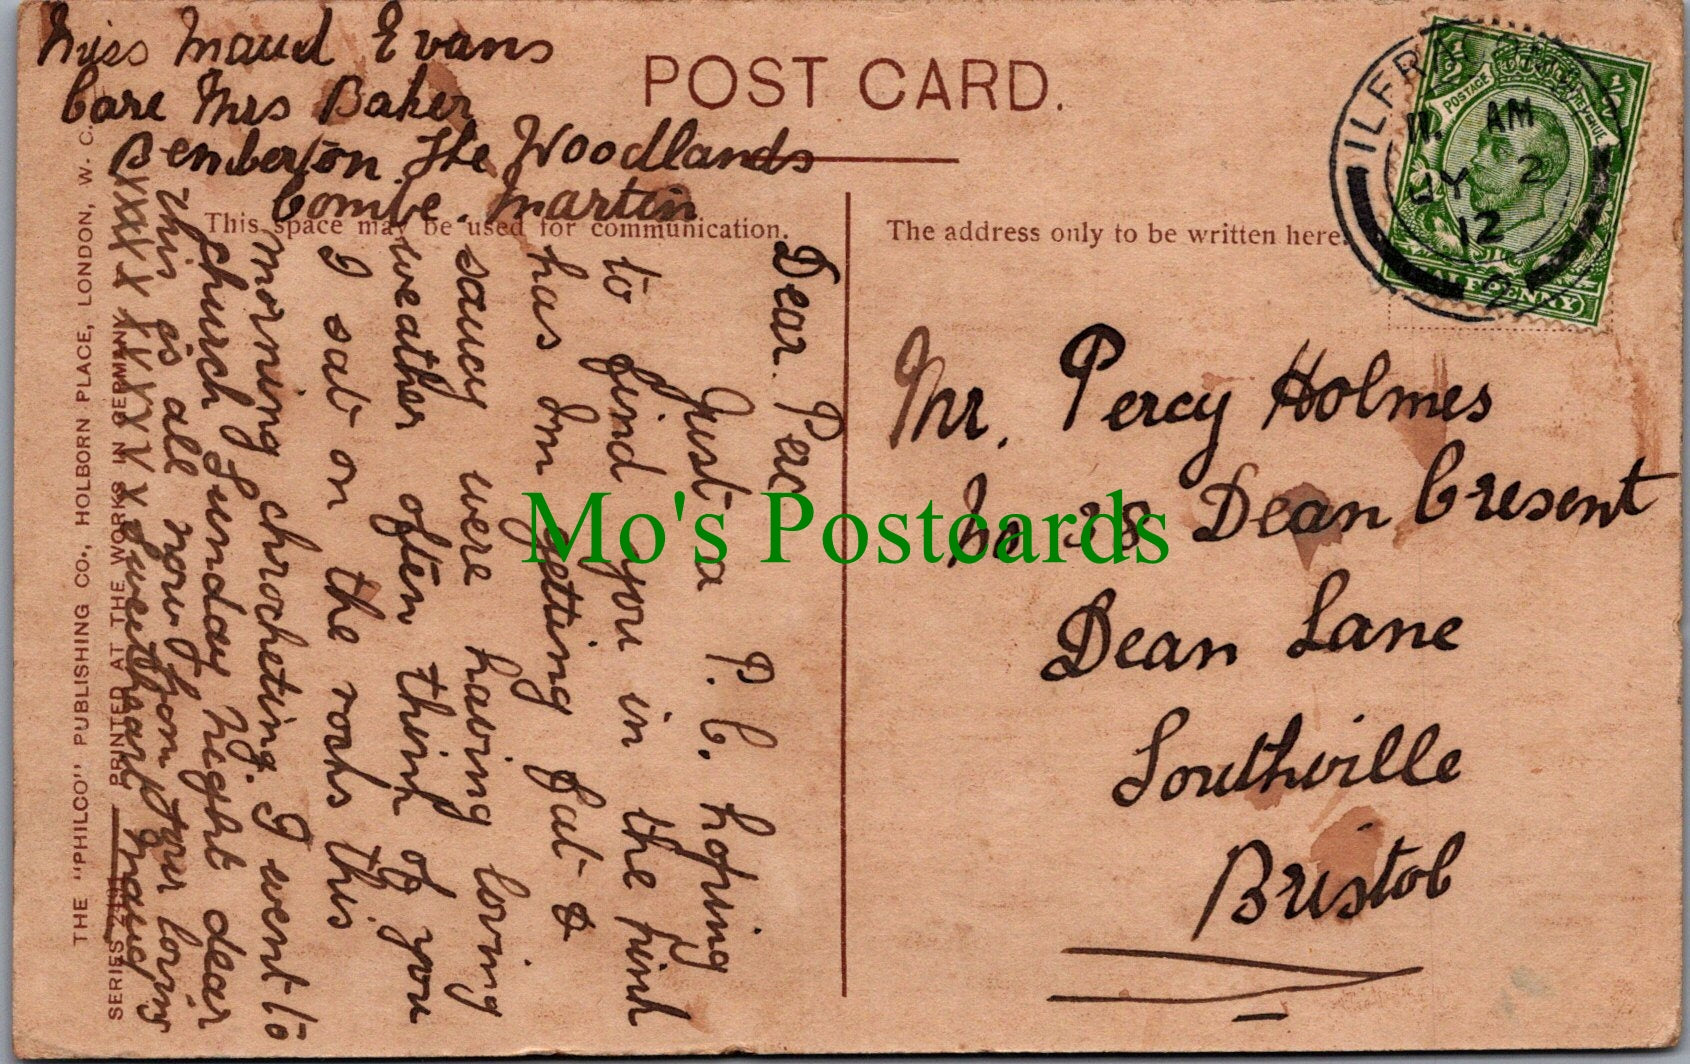 Miss Maud Evans
Care Mrs Baker
Pemberton The Woodlands
Combe. Martin
POST CARD.
This space may be used for communication.
The address only to be written here.
ILFRA
11. AM
JY 2
12
POSTAGE REVENUE
HALFPENNY
Mr. Percy Holmes
No 38 Dean Cresent
Dean Lane
Southville
Bristol
Dear. Perc
Just a P. C. hoping
to find you in the pink
has Im getting fat &
saucy were having loving
weather often think of you
I sat on the rocks this
morning chrocheting. I went to
church Sunday night dear
this is all now from your loving
Sweetheart Maud
xxxx x x x x x x x
THE "PHILCO" PUBLISHING CO., HOLBORN PLACE, LONDON, W. C.
SERIES PRINTED AT THE WORKS IN GERMANY
Mo's Postcards